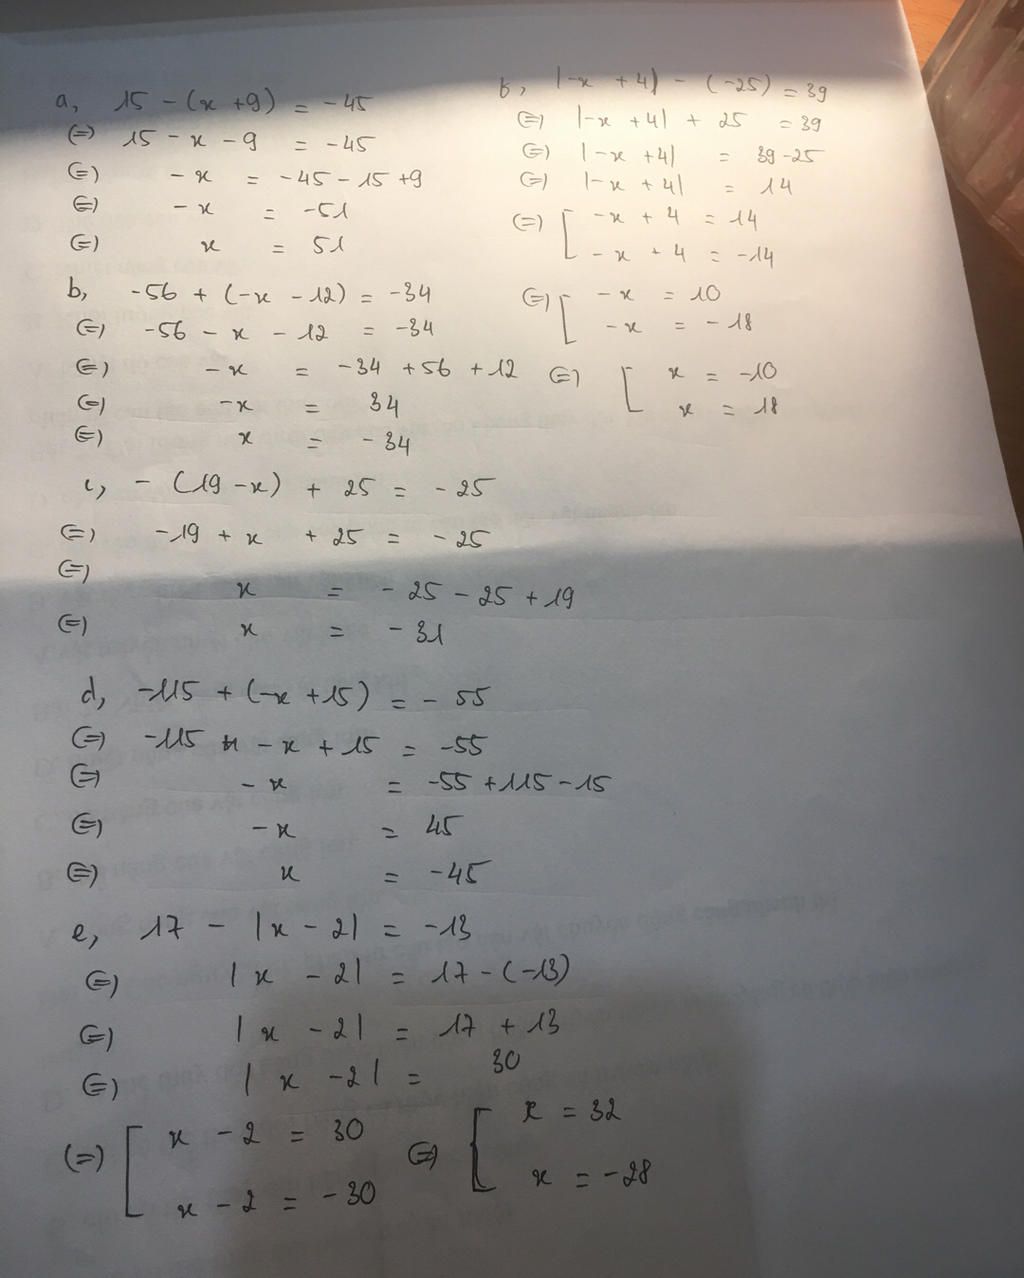 a, 15 - (x + 9) = -45
(=) 15 - x - 9 = -45
(=) - x = -45 - 15 + 9
(=) - x = -51
(=) x = 51
b, -56 + (-x - 12) = -34
(=) -56 - x - 12 = -34
(=) - x = -34 + 56 + 12
(=) -x = 34
(=) x = - 34
c, - (19 - x) + 25 = - 25
(=) -19 + x + 25 = - 25
(=) x = - 25 - 25 + 19
(=) x = - 31
d, -115 + (-x + 15) = - 55
(=) -115 - x + 15 = -55
(=) - x = -55 + 115 - 15
(=) - x = 45
(=) x = -45
e, 17 - |x - 2| = -13
(=) |x - 2| = 17 - (-13)
(=) |x - 2| = 17 + 13
(=) |x - 2| = 30
(=) [ x - 2 = 30
x - 2 = - 30
(=) [ x = 32
x = - 28
f, |-x + 4| - (-25) = 39
(=) |-x + 4| + 25 = 39
(=) |-x + 4| = 39 - 25
(=) |-x + 4| = 14
(=) [ -x + 4 = 14
- x + 4 = -14
(=) [ - x = 10
- x = - 18
(=) [ x = -10
x = 18